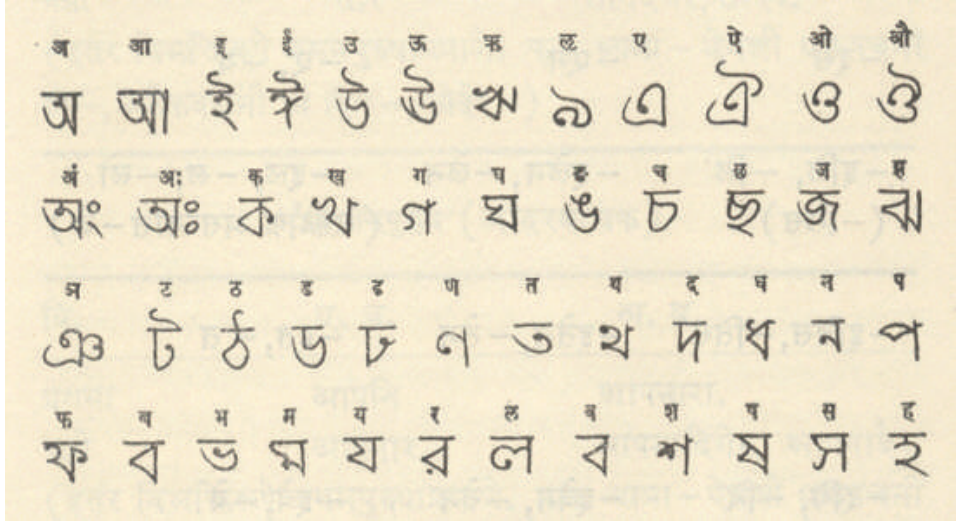 अ आ इ ई उ ऊ ऋ ऌ ए ऐ ओ औ
অ আ ই ঈ উ ঊ ঋ ঌ এ ঐ ও ঔ
अं अः क ख ग घ ङ च छ ज झ
অং অঃ ক খ গ ঘ ঙ চ ছ জ ঝ
ञ ट ठ ड ढ ण त थ द ध न प
ঞ ট ঠ ড ঢ ণ ত থ দ ধ ন প
फ ब भ म य र ल व श ष स ह
ফ ব ভ ম য র ল ব শ ষ স হ